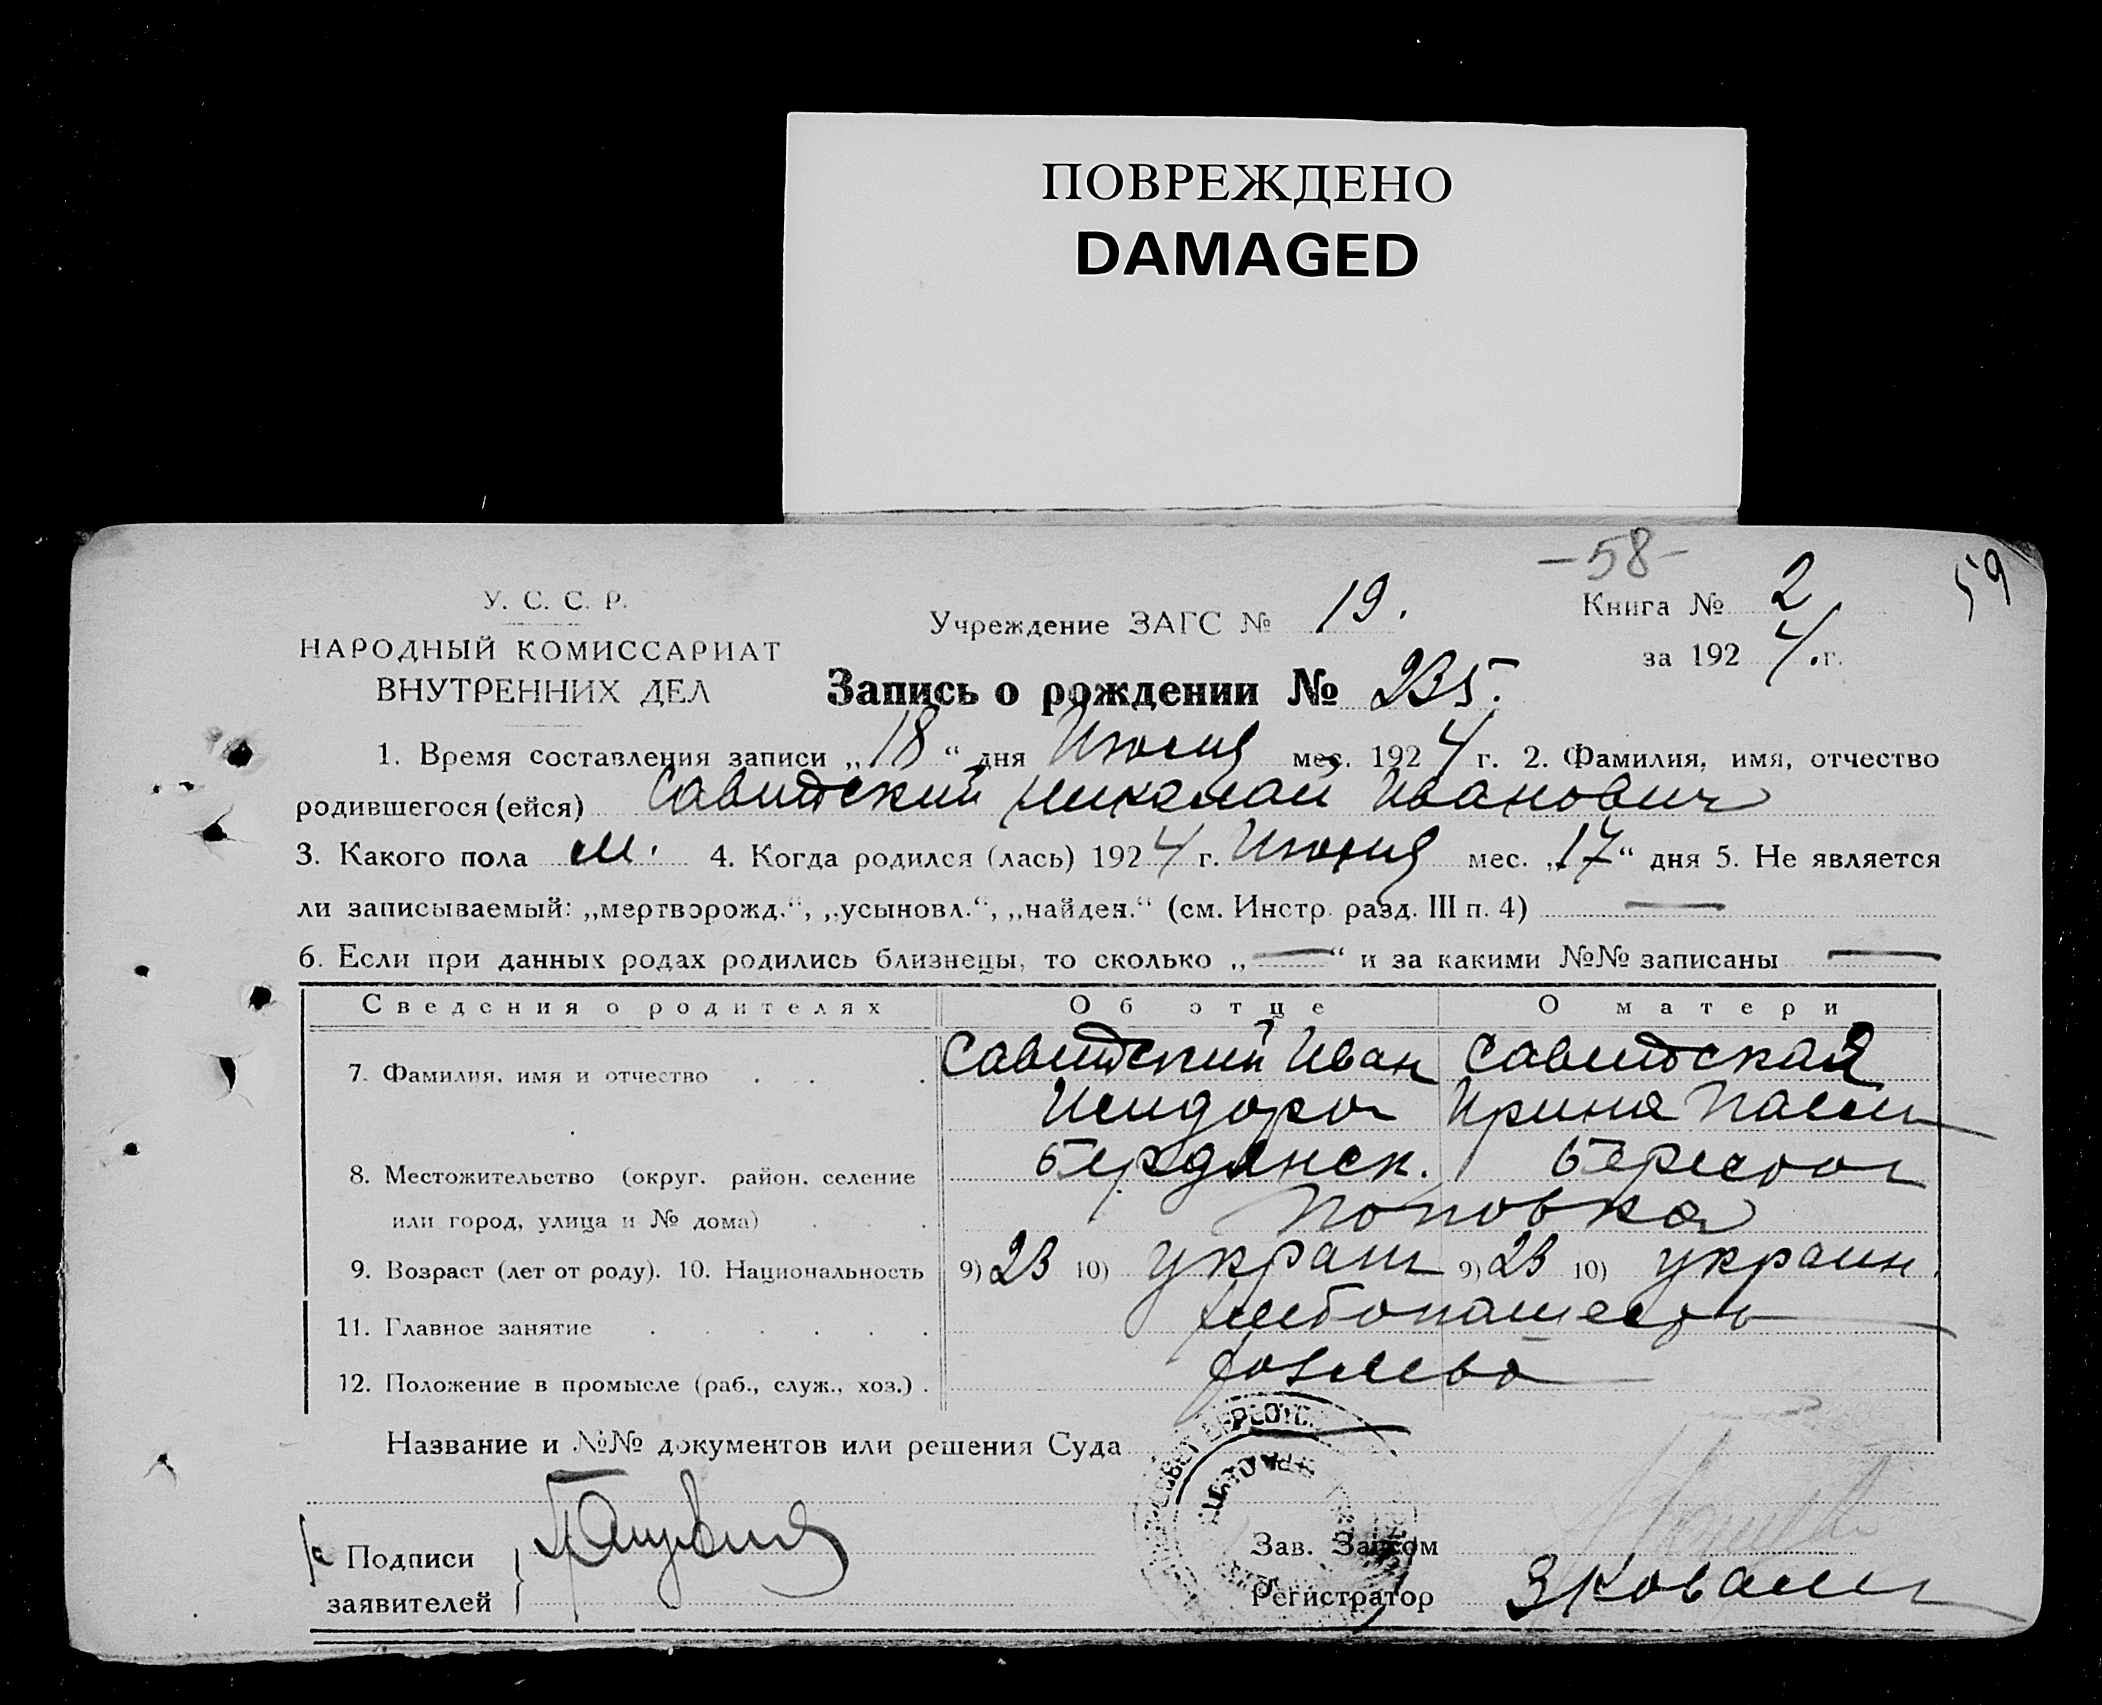 ПОВРЕЖДЕНО
DAMAGED
-58-
59
У. С. С. Р.
НАРОДНЫЙ КОМИССАРИАТ
ВНУТРЕННИХ ДЕЛ
Учреждение ЗАГС № 19.
Книга № 2
за 1924 г.
Запись о рождении № 235.
1. Время составления записи „18“ дня Июня мес. 1924 г. 2. Фамилия, имя, отчество
родившегося (ейся) Савитский Николай Иванович
3. Какого пола м. 4. Когда родился (лась) 1924 г. Июня мес. „17“ дня 5. Не является
ли записываемый: „мертворожд.“, „усыновл.“, „найден.“ (см. Инстр. разд. III п. 4) —
6. Если при данных родах родились близнецы, то сколько „—“ и за какими №№ записаны —
Сведения о родителях Об отце О матери
7. Фамилия, имя и отчество Савитский Иван Савитская
Исидоров Ирина
8. Местожительство (округ, район, селение Бердянск. Берестов
или город, улица и № дома) Поповка
9. Возраст (лет от роду). 10. Национальность 9) 23 10) украин 9) 23 10) украин.
11. Главное занятие хлебопашество
12. Положение в промысле (раб., служ., хоз.) хозяева
Название и №№ документов или решения Суда
Подписи
заявителей
Зав. Загсом
Регистратор